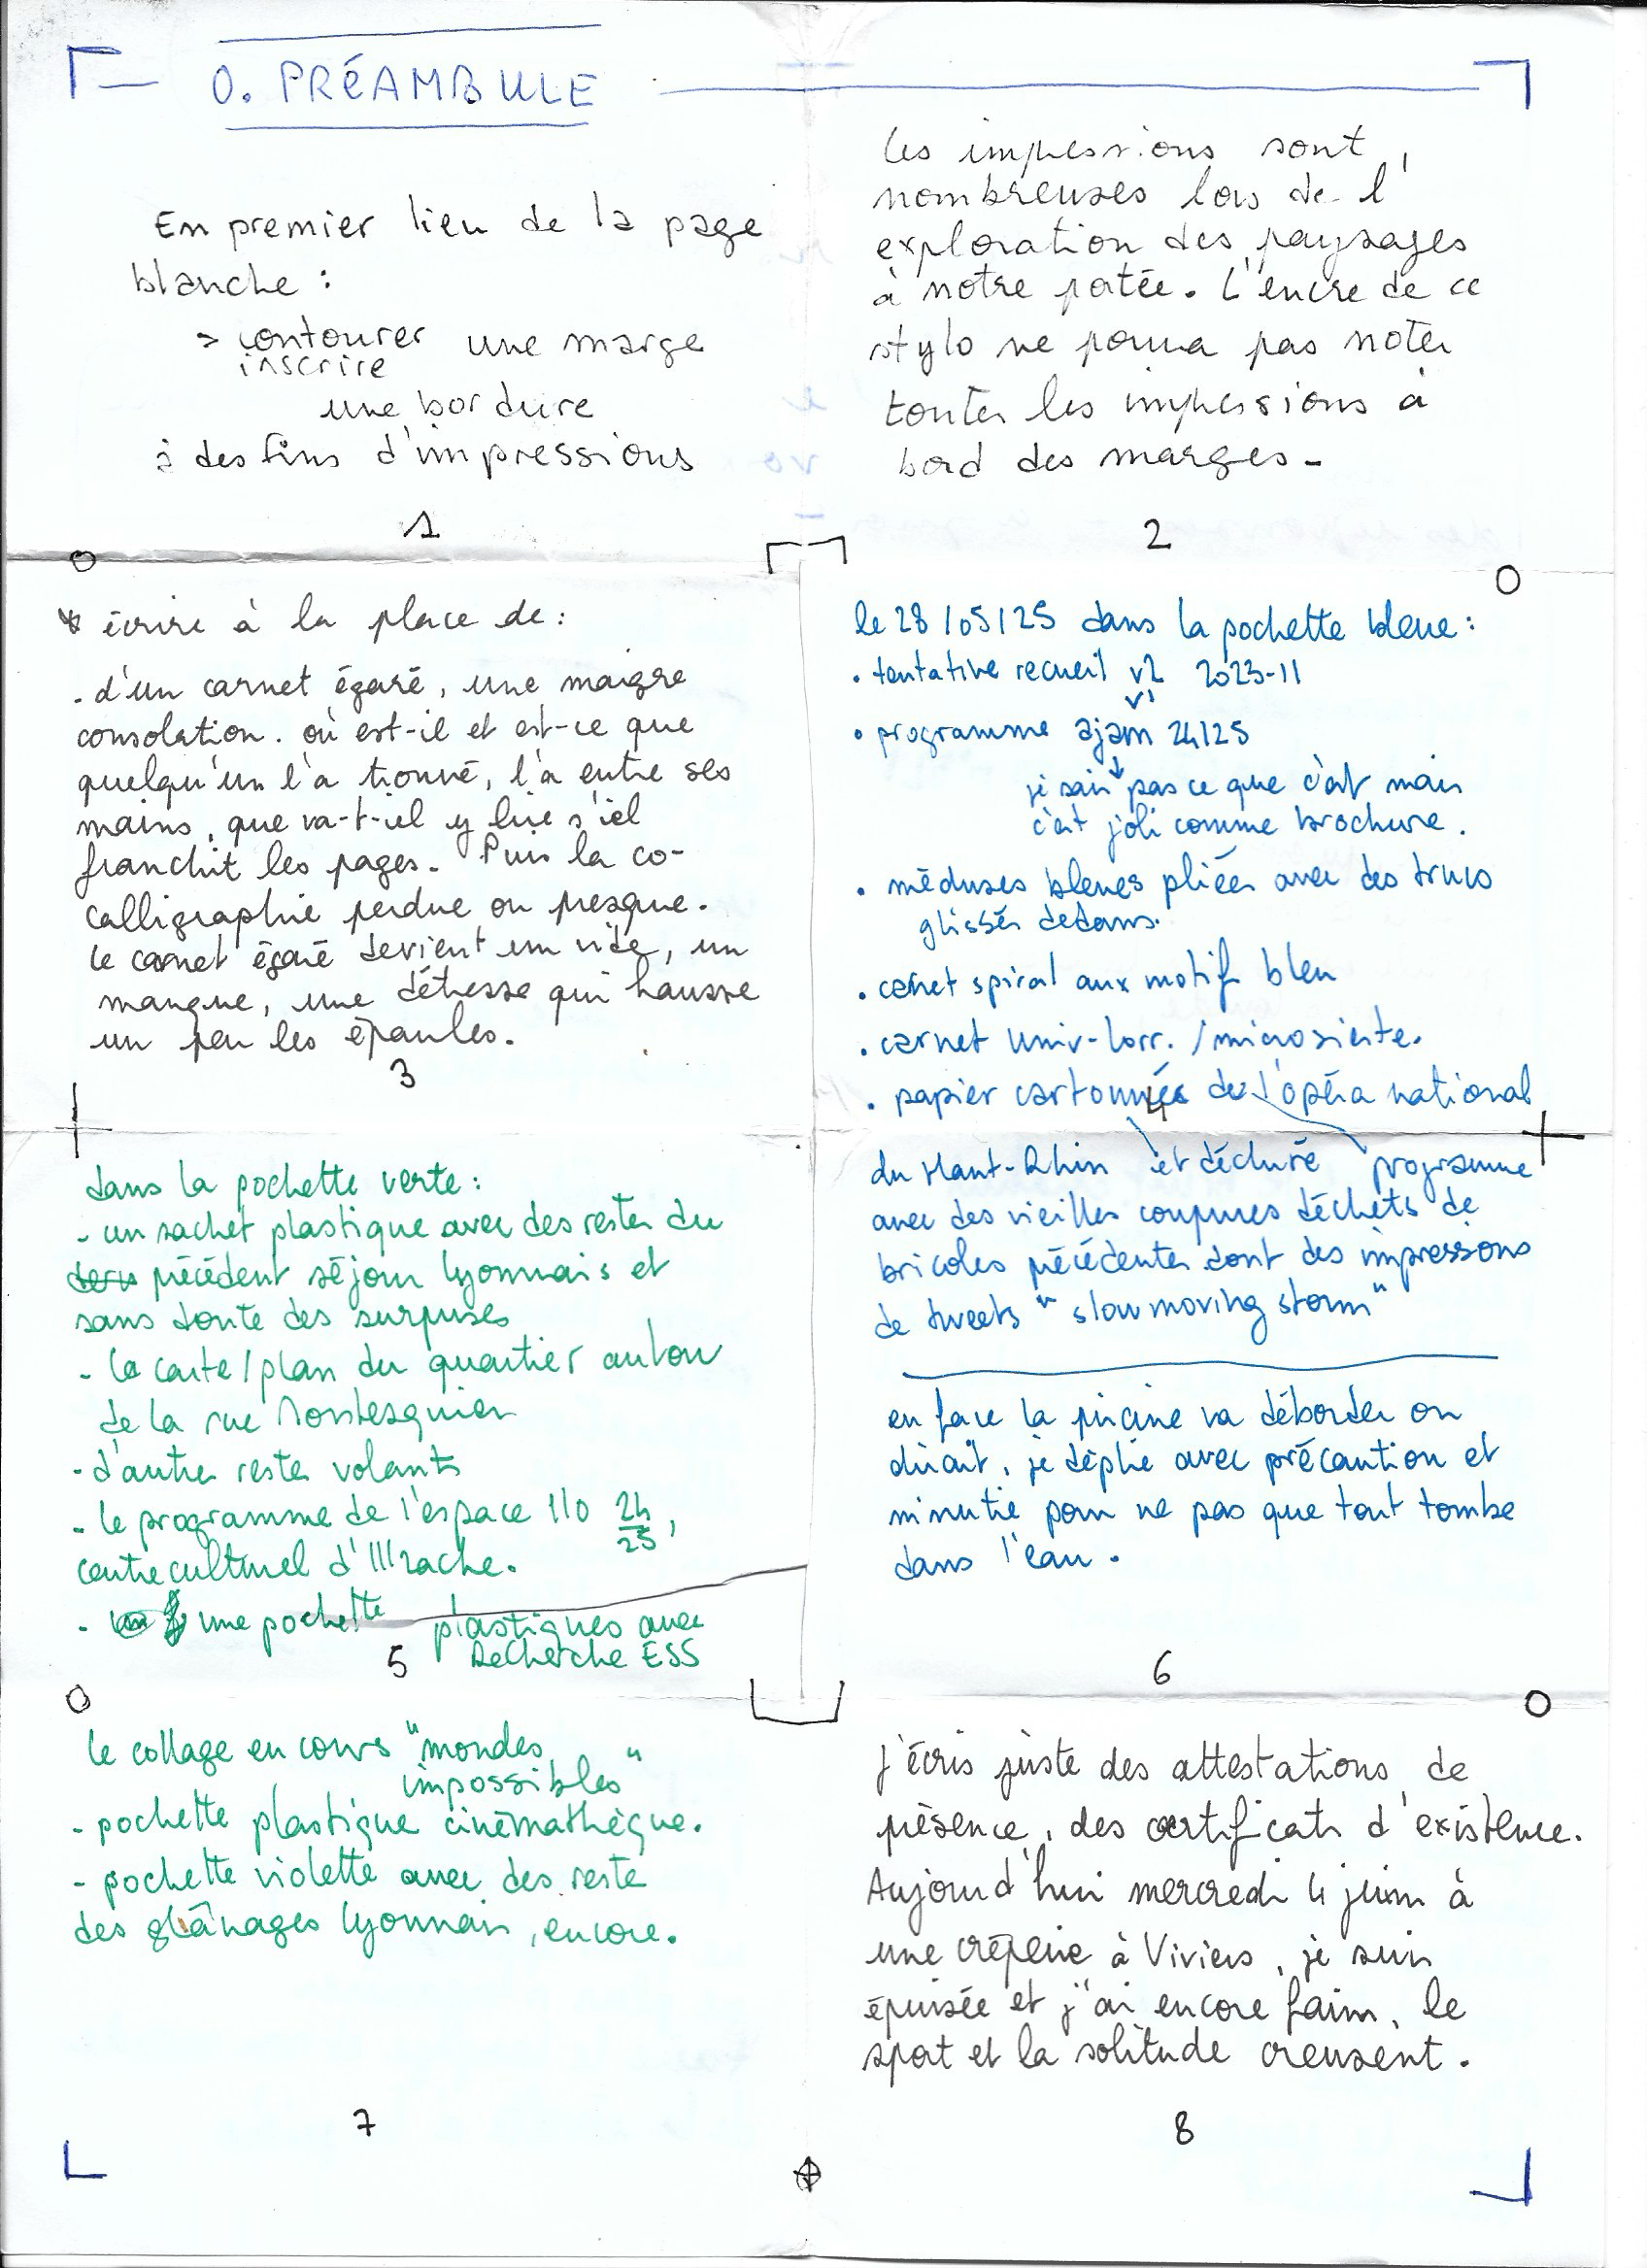 0. PRÉAMBULE
En premier lieu de la page
blanche :
> contourer une marge
inscrire
une bordure
à des fins d'impressions
1
Les impressions sont
nombreuses lors de l'
exploration des paysages
à notre potée. L'encre de ce
stylo ne pourra pas noter
toutes les impressions à
bord des marges -
2
* écrire à la place de :
- d'un carnet égaré, une maigre
consolation. où est-il et est-ce que
quelqu'un l'a trouvé, l'a entre ses
mains, que va-t-iel y lire s'iel
franchit les pages. Puis la co-
calligraphie perdue ou presque.
le carnet égaré devient un vide, un
manque, une détresse qui hausse
un peu les épaules.
3
le 28/05/25 dans la pochette bleue :
• tentative recueil v2 2023-11
v1
• programme ajam 24/25
je sais pas ce que c'est mais
c'est joli comme brochure.
• méduses bleues pliées avec des trucs
glissés dedans.
• carnet spiral aux motif bleu
• carnet univ-lorr. / microsieste.
• papier cartonnée de l'opéra national
4
du Haut-Rhin et déchiré programme
avec des vieilles coupures déchets de
bricoles précédentes dont des impressons
de tweets "slow moving storm"
en face la piscine va déborder on
dirait, je déplie avec précaution et
minutie pour ne pas que tout tombe
dans l'eau.
6
dans la pochette verte :
- un sachet plastique avec des restes du
précédent séjour lyonnais et
sans doute des surprises
- la carte/plan du quartier autour
de la rue Montesquieu
- d'autres restes volants
- le programme de l'espace 110 24/25,
centre culturel d'Illzach.
- une pochette plastiques avec
Recherche ESS
5
le collage en cours "mondes
impossibles"
- pochette plastique cinémathèque.
- pochette violette avec des reste
des glânages lyonnais, encore.
7
J'écris juste des attestations de
présence, des certificats d'existence.
Aujourd'hui mercredi 4 juin à
une crêperie à Viviers, je suis
épuisée et j'ai encore faim, le
sport et la solitude creusent.
8